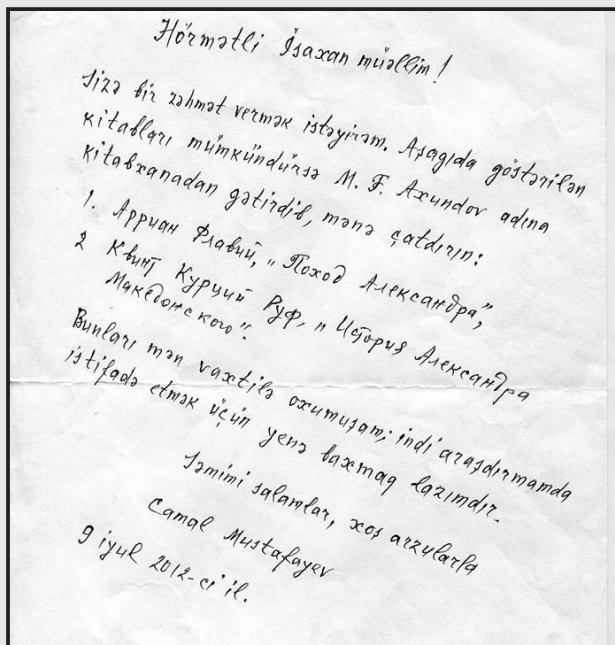 Hörmətli İsaxan müəllim!
Sizə bir zəhmət vermək istəyirəm. Aşagıda göstərilən
kitabları mümkündürsə M. F. Axundov adına
kitabxanadan gətirdib, mənə çatdırın:
1. Арриан Флавий, „Поход Александра",
2 Квинт Курций Руф, „История Александра
Македонского".
Bunları mən vaxtilə oxumuşam; indi araşdırmamda
istifadə etmək üçün yenə baxmaq lazımdır.
Səmimi salamlar, xoş arzularla
Camal Mustafayev
9 iyul 2012-ci il.